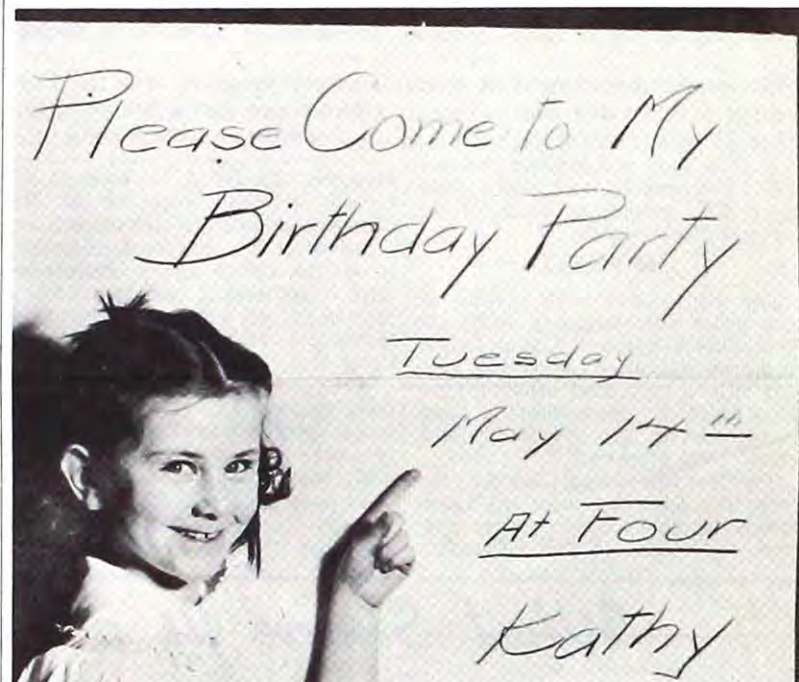 Please Come To My
Birthday Party
Tuesday
May 14th
At Four
Kathy